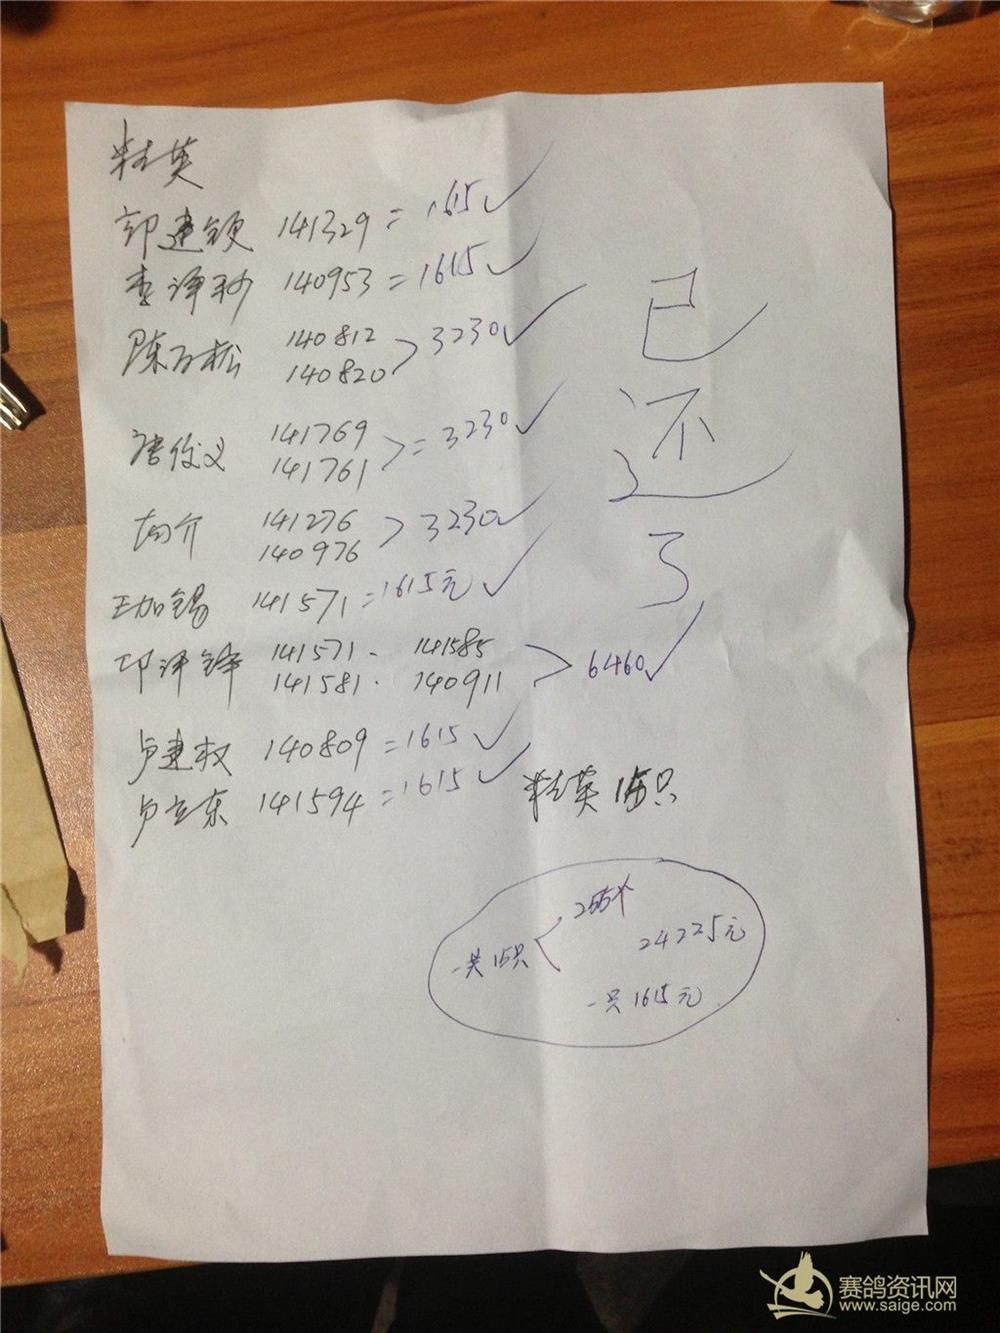 精英
141329 = 1615✓
李译利 140953 = 1615✓
陈万松 140812
140820 > 3230✓
唐俊义 141769
141761 > = 3230✓
141276
140976 > 3230✓
王加锡 141571 = 1615元✓
邱泽锋 141571. 141585
141581. 140911 > 6460✓
卢建权 140809 = 1615✓
卢立东 141594 = 1615✓
精英 15只
已
还
了
一共15只
24225元
一只1615元
赛鸽资讯网
www.saige.com